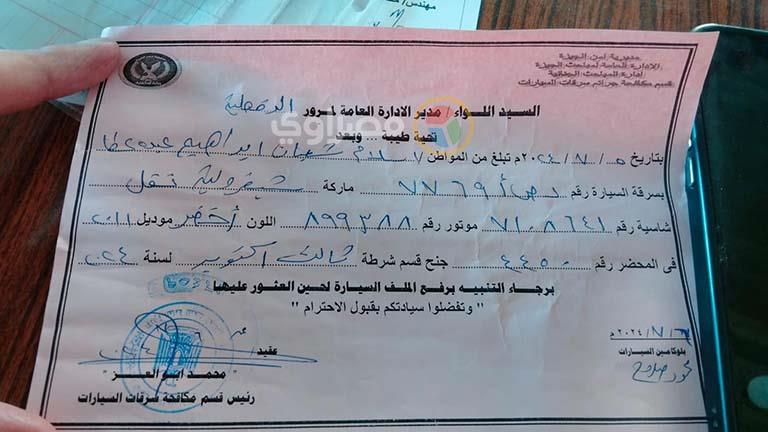 مهندس/
مديرية أمن الجيزة
الإدارة العامة لمباحث الجيزة
إدارة المباحث الجنائية
قسم مكافحة جرائم سرقات السيارات
السيد اللواء / مدير الادارة العامة لمرور الدقهلية
تحية طيبة ... وبعد
بتاريخ ٥ / ٧ / ٢٠٢٤م تبلغ من المواطن / إسلام شعبان ابراهيم عبده عطا
بسرقة السيارة رقم د ص أ ٧٧٦٩ ماركة شيفروليه نقل
شاسية رقم ٧١٠٨٦٤١ موتور رقم ٨٩٩٣٨٨ اللون أخضر موديل ٢٠١١
فى المحضر رقم ٤٤٥٠ جنح قسم شرطة ثالث أكتوبر لسنة ٢٠٢٤
برجاء التنبيه برفع الملف السيارة لحين العثور عليها
" وتفضلوا سيادتكم بقبول الاحترام "
٢٠٢٤/٧/٦م
عقيد/
بلوكامين السيارات
" محمد ابو العز "
محمود صلاح
رئيس قسم مكافحة سرقات السيارات
مصراوي